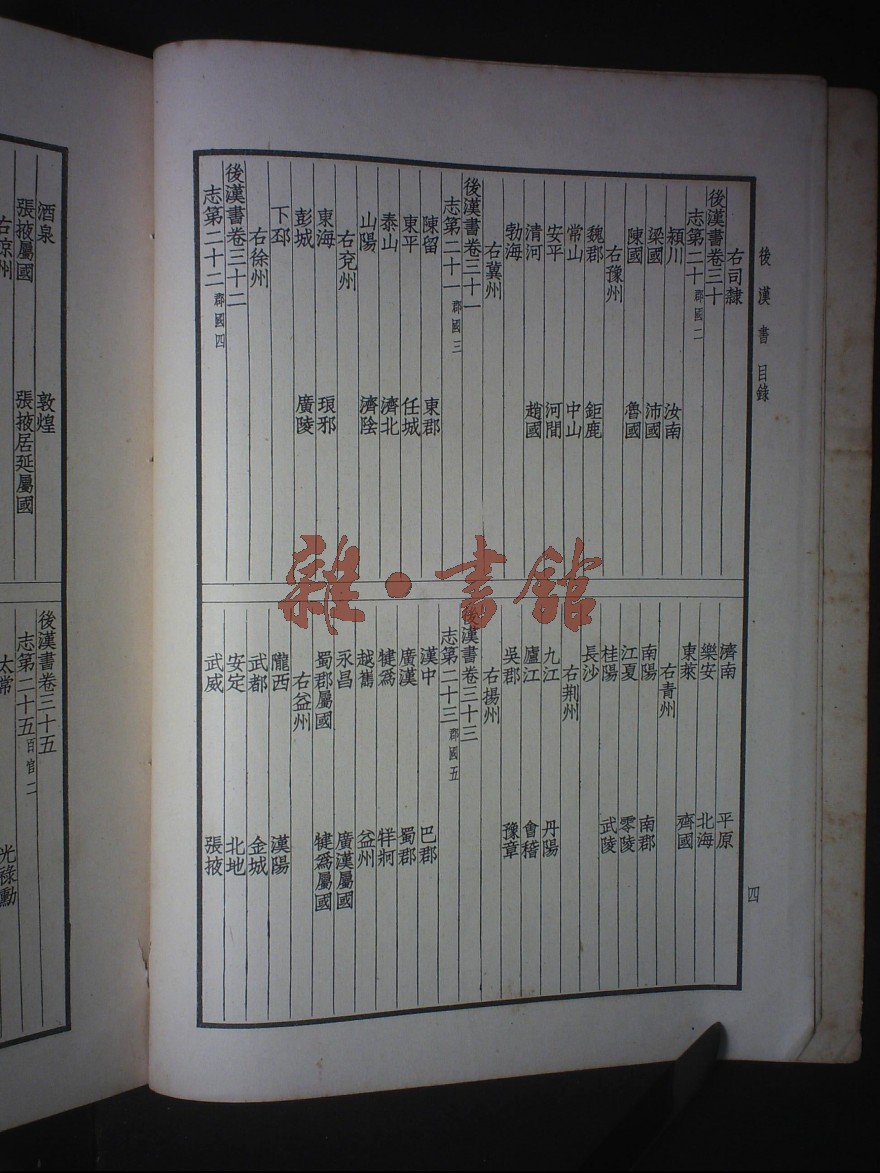 後漢書目錄
四
右司隸
後漢書卷三十
志第二十郡國二
潁川 汝南
梁國 沛國
陳國 魯國
右豫州
魏郡 鉅鹿
常山 中山
安平 河間
清河 趙國
勃海
右冀州
後漢書卷三十一
志第二十一郡國三
陳留 東郡
東平 任城
泰山 濟北
山陽 濟陰
右兗州
東海 琅邪
彭城 廣陵
下邳
右徐州
後漢書卷三十二
志第二十二郡國四
濟南 平原
樂安 北海
東萊 齊國
右青州
南陽 南郡
江夏 零陵
桂陽 武陵
長沙
右荆州
九江 丹陽
廬江 會稽
吳郡 豫章
右揚州
後漢書卷三十三
志第二十三郡國五
漢中 巴郡
廣漢 蜀郡
犍爲 牂牁
越巂 益州
永昌 廣漢屬國
蜀郡屬國 犍爲屬國
右益州
隴西 漢陽
武都 金城
安定 北地
武威 張掖
酒泉 敦煌
張掖屬國 張掖居延屬國
右涼州
後漢書卷三十五
志第二十五百官二
太常 光祿勳
雜·書館